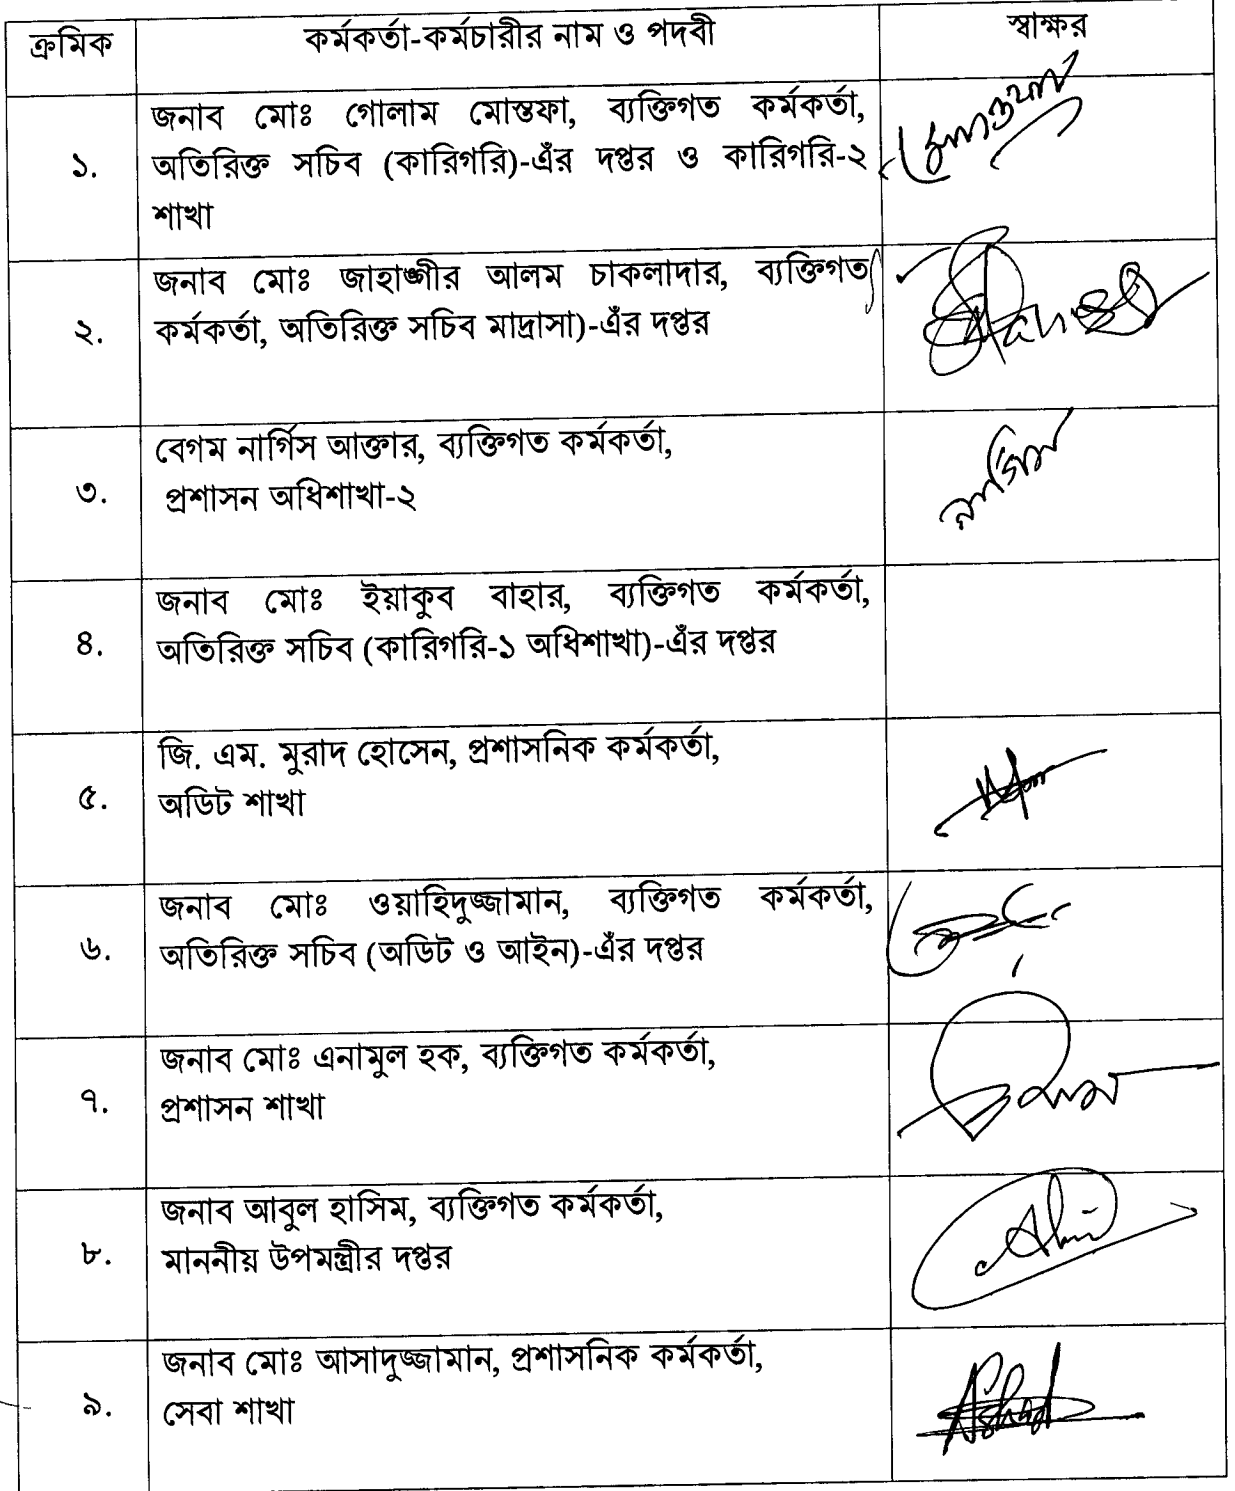 ক্রমিক কর্মকর্তা-কর্মচারীর নাম ও পদবী স্বাক্ষর
জনাব মোঃ গোলাম মোস্তফা, ব্যক্তিগত কর্মকর্তা,
১. অতিরিক্ত সচিব (কারিগরি)-এঁর দপ্তর ও কারিগরি-২
শাখা
জনাব মোঃ জাহাঙ্গীর আলম চাকলাদার, ব্যক্তিগত
২. কর্মকর্তা, অতিরিক্ত সচিব মাদ্রাসা)-এঁর দপ্তর
বেগম নার্গিস আক্তার, ব্যক্তিগত কর্মকর্তা,
৩. প্রশাসন অধিশাখা-২ নার্গিস
জনাব মোঃ ইয়াকুব বাহার, ব্যক্তিগত কর্মকর্তা,
৪. অতিরিক্ত সচিব (কারিগরি-১ অধিশাখা)-এঁর দপ্তর
জি. এম. মুরাদ হোসেন, প্রশাসনিক কর্মকর্তা,
৫. অডিট শাখা
জনাব মোঃ ওয়াহিদুজ্জামান, ব্যক্তিগত কর্মকর্তা,
৬. অতিরিক্ত সচিব (অডিট ও আইন)-এঁর দপ্তর
জনাব মোঃ এনামুল হক, ব্যক্তিগত কর্মকর্তা,
৭. প্রশাসন শাখা
জনাব আবুল হাসিম, ব্যক্তিগত কর্মকর্তা,
৮. মাননীয় উপমন্ত্রীর দপ্তর
জনাব মোঃ আসাদুজ্জামান, প্রশাসনিক কর্মকর্তা,
৯. সেবা শাখা